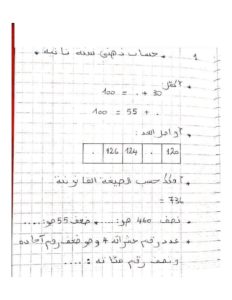 1. حساب ذهني سنة ثانية *
* أكمل
100 = . + 30
100 = 55 + .
* أواصل العد :
. 126 124 . 120
* أفكك حسب الصيغة القانونية
= 736
* نصف 460 هو:..... * ضعف 55 هو:.....
* عدد رقم عشراته 4 وهو ضعف رقم آحاده
ونصف رقم مئاته : .....